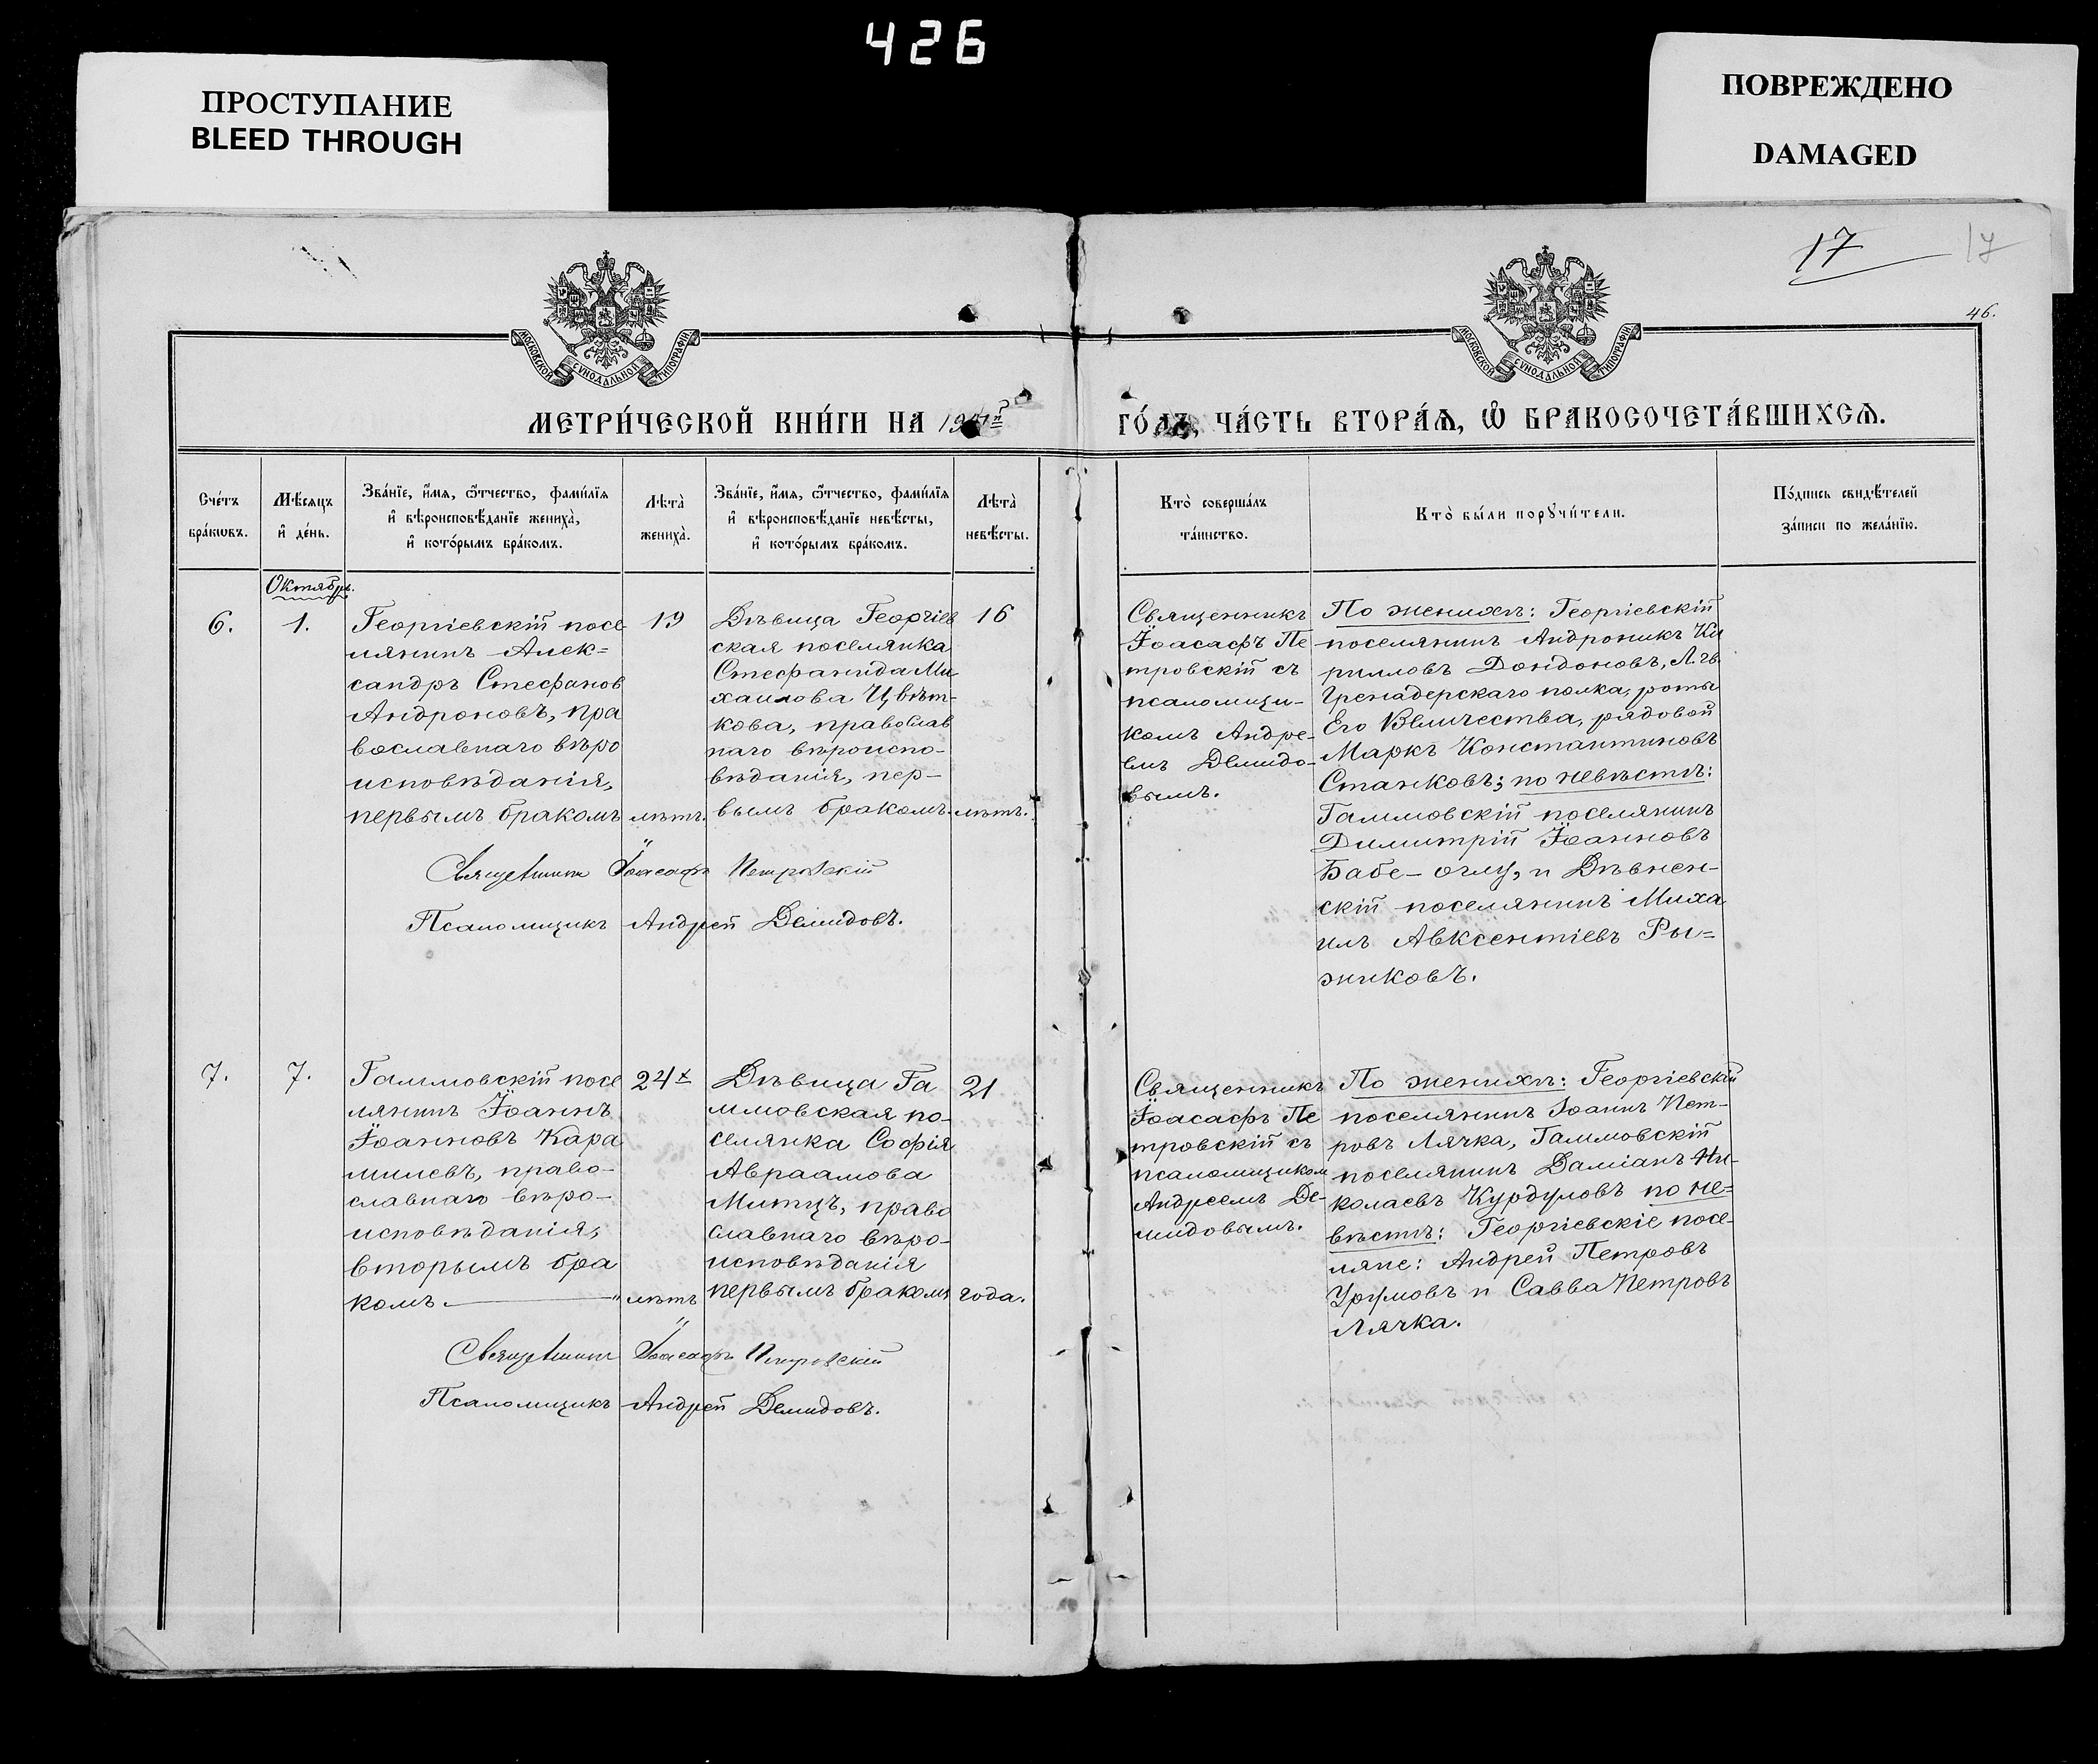 426
ПРОСТУПАНИЕ
BLEED THROUGH
ПОВРЕЖДЕНО
DAMAGED
17
17
46.
МОСКОВСКОЙ СѴНОДАЛЬНОЙ ТИПОГРАФІИ
МОСКОВСКОЙ СѴНОДАЛЬНОЙ ТИПОГРАФІИ
МЕТРИ́ЧЕСКОЙ КНИ́ГИ НА
ГО́ДЪ, ЧА́СТЬ ВТОРА́Ѧ, Ѽ БРАКОСОЧЕТА́ВШИХСѦ.
Сче́тъ
бра́кѡвъ.
Мѣ́сяцъ
и҆ де́нь.
Зва́нїе, и҆́мя, ѻ҆́тчество, фами́лїя
и҆ вѣроисповѣ́данїе жениха̀,
и҆ кото́рымъ бра́комъ.
Лѣта̀
жениха̀.
Зва́нїе, и҆́мя, ѻ҆́тчество, фами́лїя
и҆ вѣроисповѣ́данїе невѣ́сты,
и҆ кото́рымъ бра́комъ.
Лѣта̀
невѣ́сты.
Кто̀ соверша́лъ
та́инство.
Кто̀ бы́ли порꙋчи́тели.
По́дпись свидѣ́телей
за́писи по жела́нїю.
Октябрь.
6.
1.
Георгіевскій посе
лянинъ Алек=
сандръ Стефановъ
Андроновъ, пра
вославнаго вѣро
исповѣданія,
первымъ бракомъ
19
лѣтъ.
Дѣвица Георгіев
ская поселянка
Стефанида Ми
хаилова Цвѣт-
кова, православ
наго вѣроиспо-
вѣданія, пер-
вымъ бракомъ.
16
лѣтъ.
Священникъ Іоасафъ Петровскій
Псаломщикъ Андрей Демидовъ.
Священникъ
Іоасафъ Пе
тровскій съ
псаломщи-
комъ Андре-
емъ Демидо-
вымъ.
По женихѣ: Георгіевскій
поселянинъ Андроникъ Ки
рилловъ Дондоновъ, Л. гв.
Гренадерскаго полка, роты
Его Величества, рядовой
Маркъ Константиновъ
Станковъ; по невѣстѣ:
Гаммовскій поселянинъ
Димитрій Іоанновъ
Бабе-оглу, и Дѣвнен-
скій поселянинъ Миха
илъ Авксентіевъ Ры=
жиковъ.
7.
7.
Гаммовскій посе
лянинъ Іоаннъ
Іоанновъ Кара
милевъ, право-
славнаго вѣро-
исповѣданія,
вторымъ бра
комъ
24
лѣтъ
Дѣвица Га
ммовская по-
селянка Софія
Авраамова
Митицъ, право
славнаго вѣро-
исповѣданія
первымъ бракомъ
21
года.
Священникъ Іоасафъ Петровскій
Псаломщикъ Андрей Демидовъ.
Священникъ
Іоасафъ Пе
тровскій съ
псаломщикомъ
Андреемъ Де-
мидовымъ.
По женихѣ: Георгіевскій
поселянинъ Іоаннъ Пет-
ровъ Лячка, Гаммовскій
поселянинъ Даміанъ Ни-
колаевъ Курдуловъ по не=
вѣстѣ: Георгіевскіе посе-
ляне: Андрей Петровъ
Ургумовъ и Савва Петровъ
Лячка.